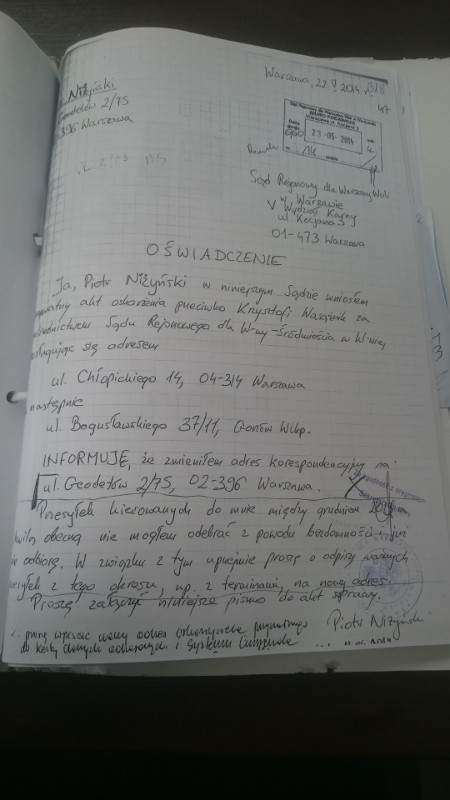 Niżyński
Geodetów 2/75
396 Warszawa
Warszawa, 22 V 2014 r.
47
23 -05- 2014
Sąd Rejonowy dla Warszawy Woli
w Warszawie
V Wydział Karny
ul. Kocjana 3
01-473 Warszawa
OŚWIADCZENIE
Ja, Piotr Niżyński w niniejszym Sądzie wniosłem
prywatny akt oskarżenia przeciwko Krzysztofi za
pośrednictwem Sądu Rejonowego dla W-wy-Śródmieścia w W-wie,
posługując się adresem
ul. Chłopickiego 14, 04-314 Warszawa
następnie
ul. Bogusławskiego 37/11, Gorzów Wlkp.
INFORMUJĘ, że zmieniłem adres korespondencyjny na:
ul. Geodetów 2/75, 02-396 Warszawa.
Przesyłek kierowanych do mnie między grudniem
chwilą obecną nie mogłem odebrać z powodu bezdomności i już
nie odbiorę. W związku z tym uprzejmie proszę o odpisy ważnych
przesyłek z tego okresu, np. z terminami, na nowy adres.
Proszę załączyć niniejsze pismo do akt sprawy.
Piotr Niżyński
proszę wpisać nowy adres oskarżyciela prywatnego
do karty danych adresowych i systemu